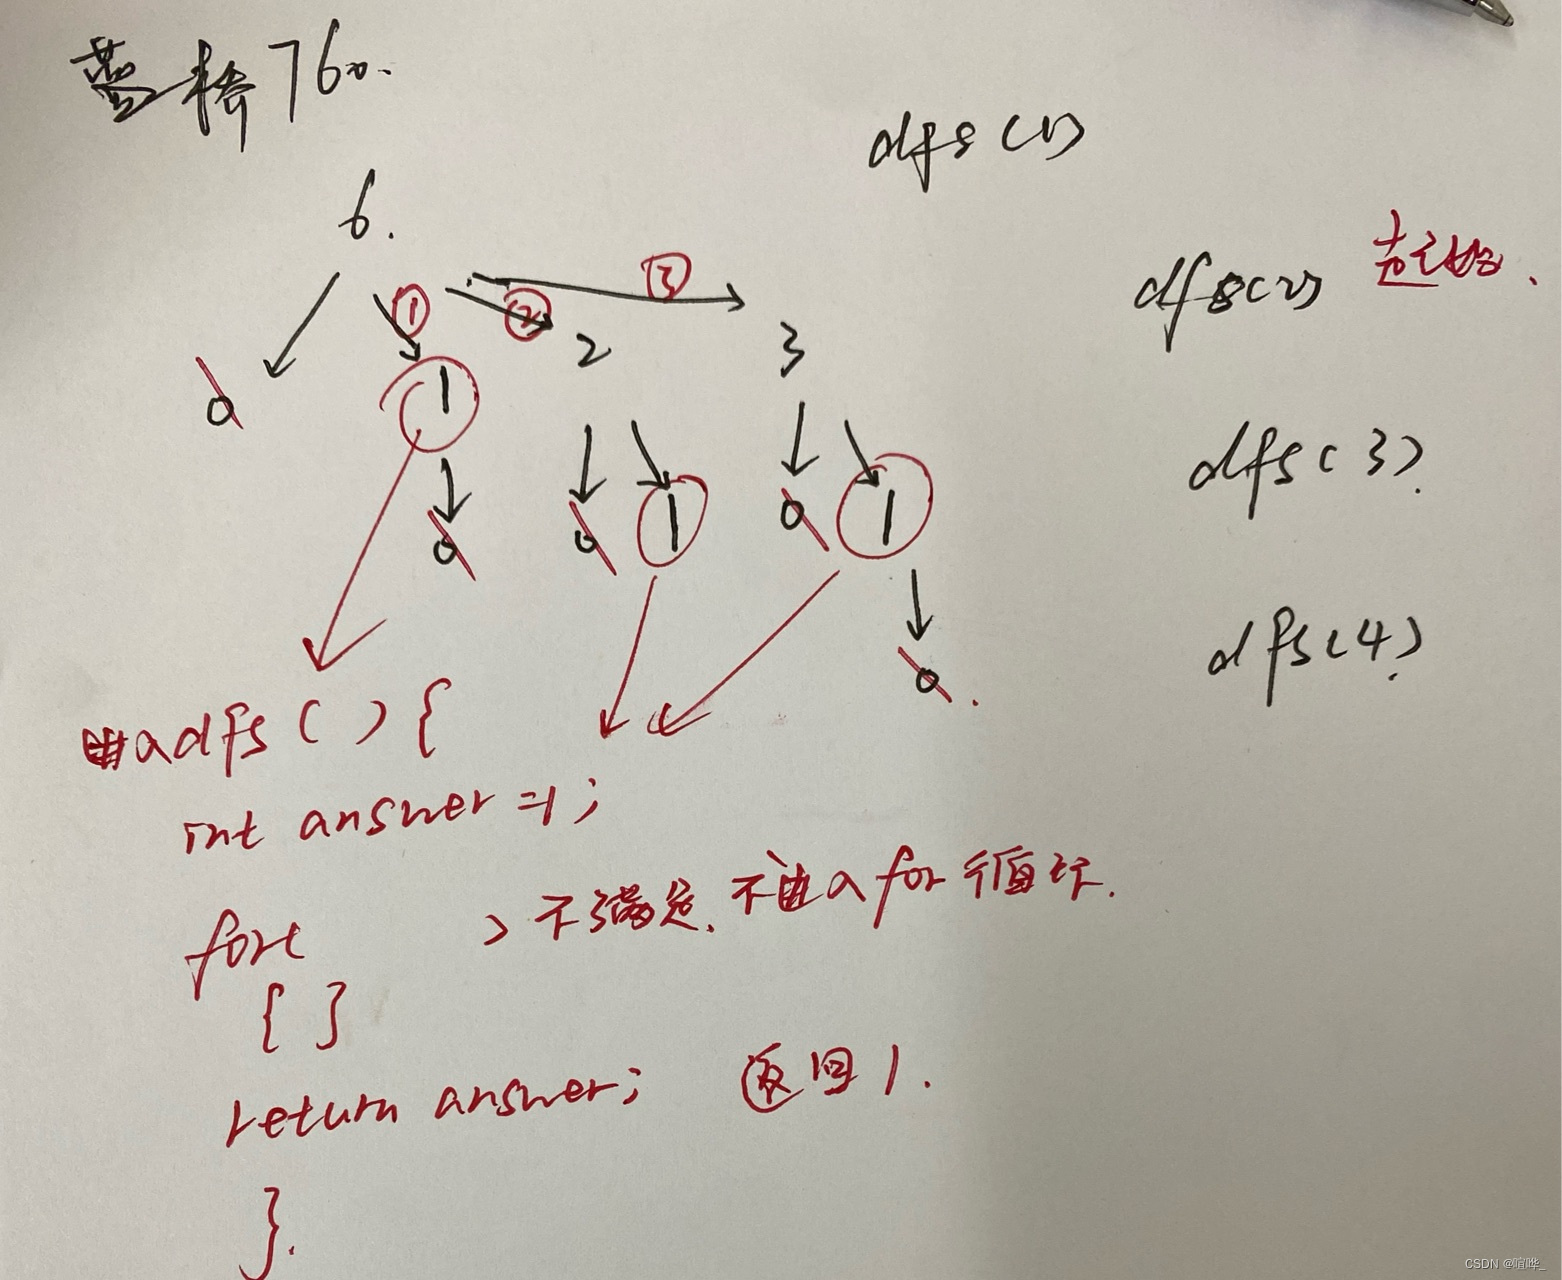 蓝桥760.
dfs(1)
6.
dfs(2)
①
②
③
0
1
2
3
dfs(3)
0
0
1
0
1
dfs(4)
0
dfs(){
int answer=1;
for
不满足,不进入for循环.
{ }
return answer; 返回1.
}
CSDN @喧哗_